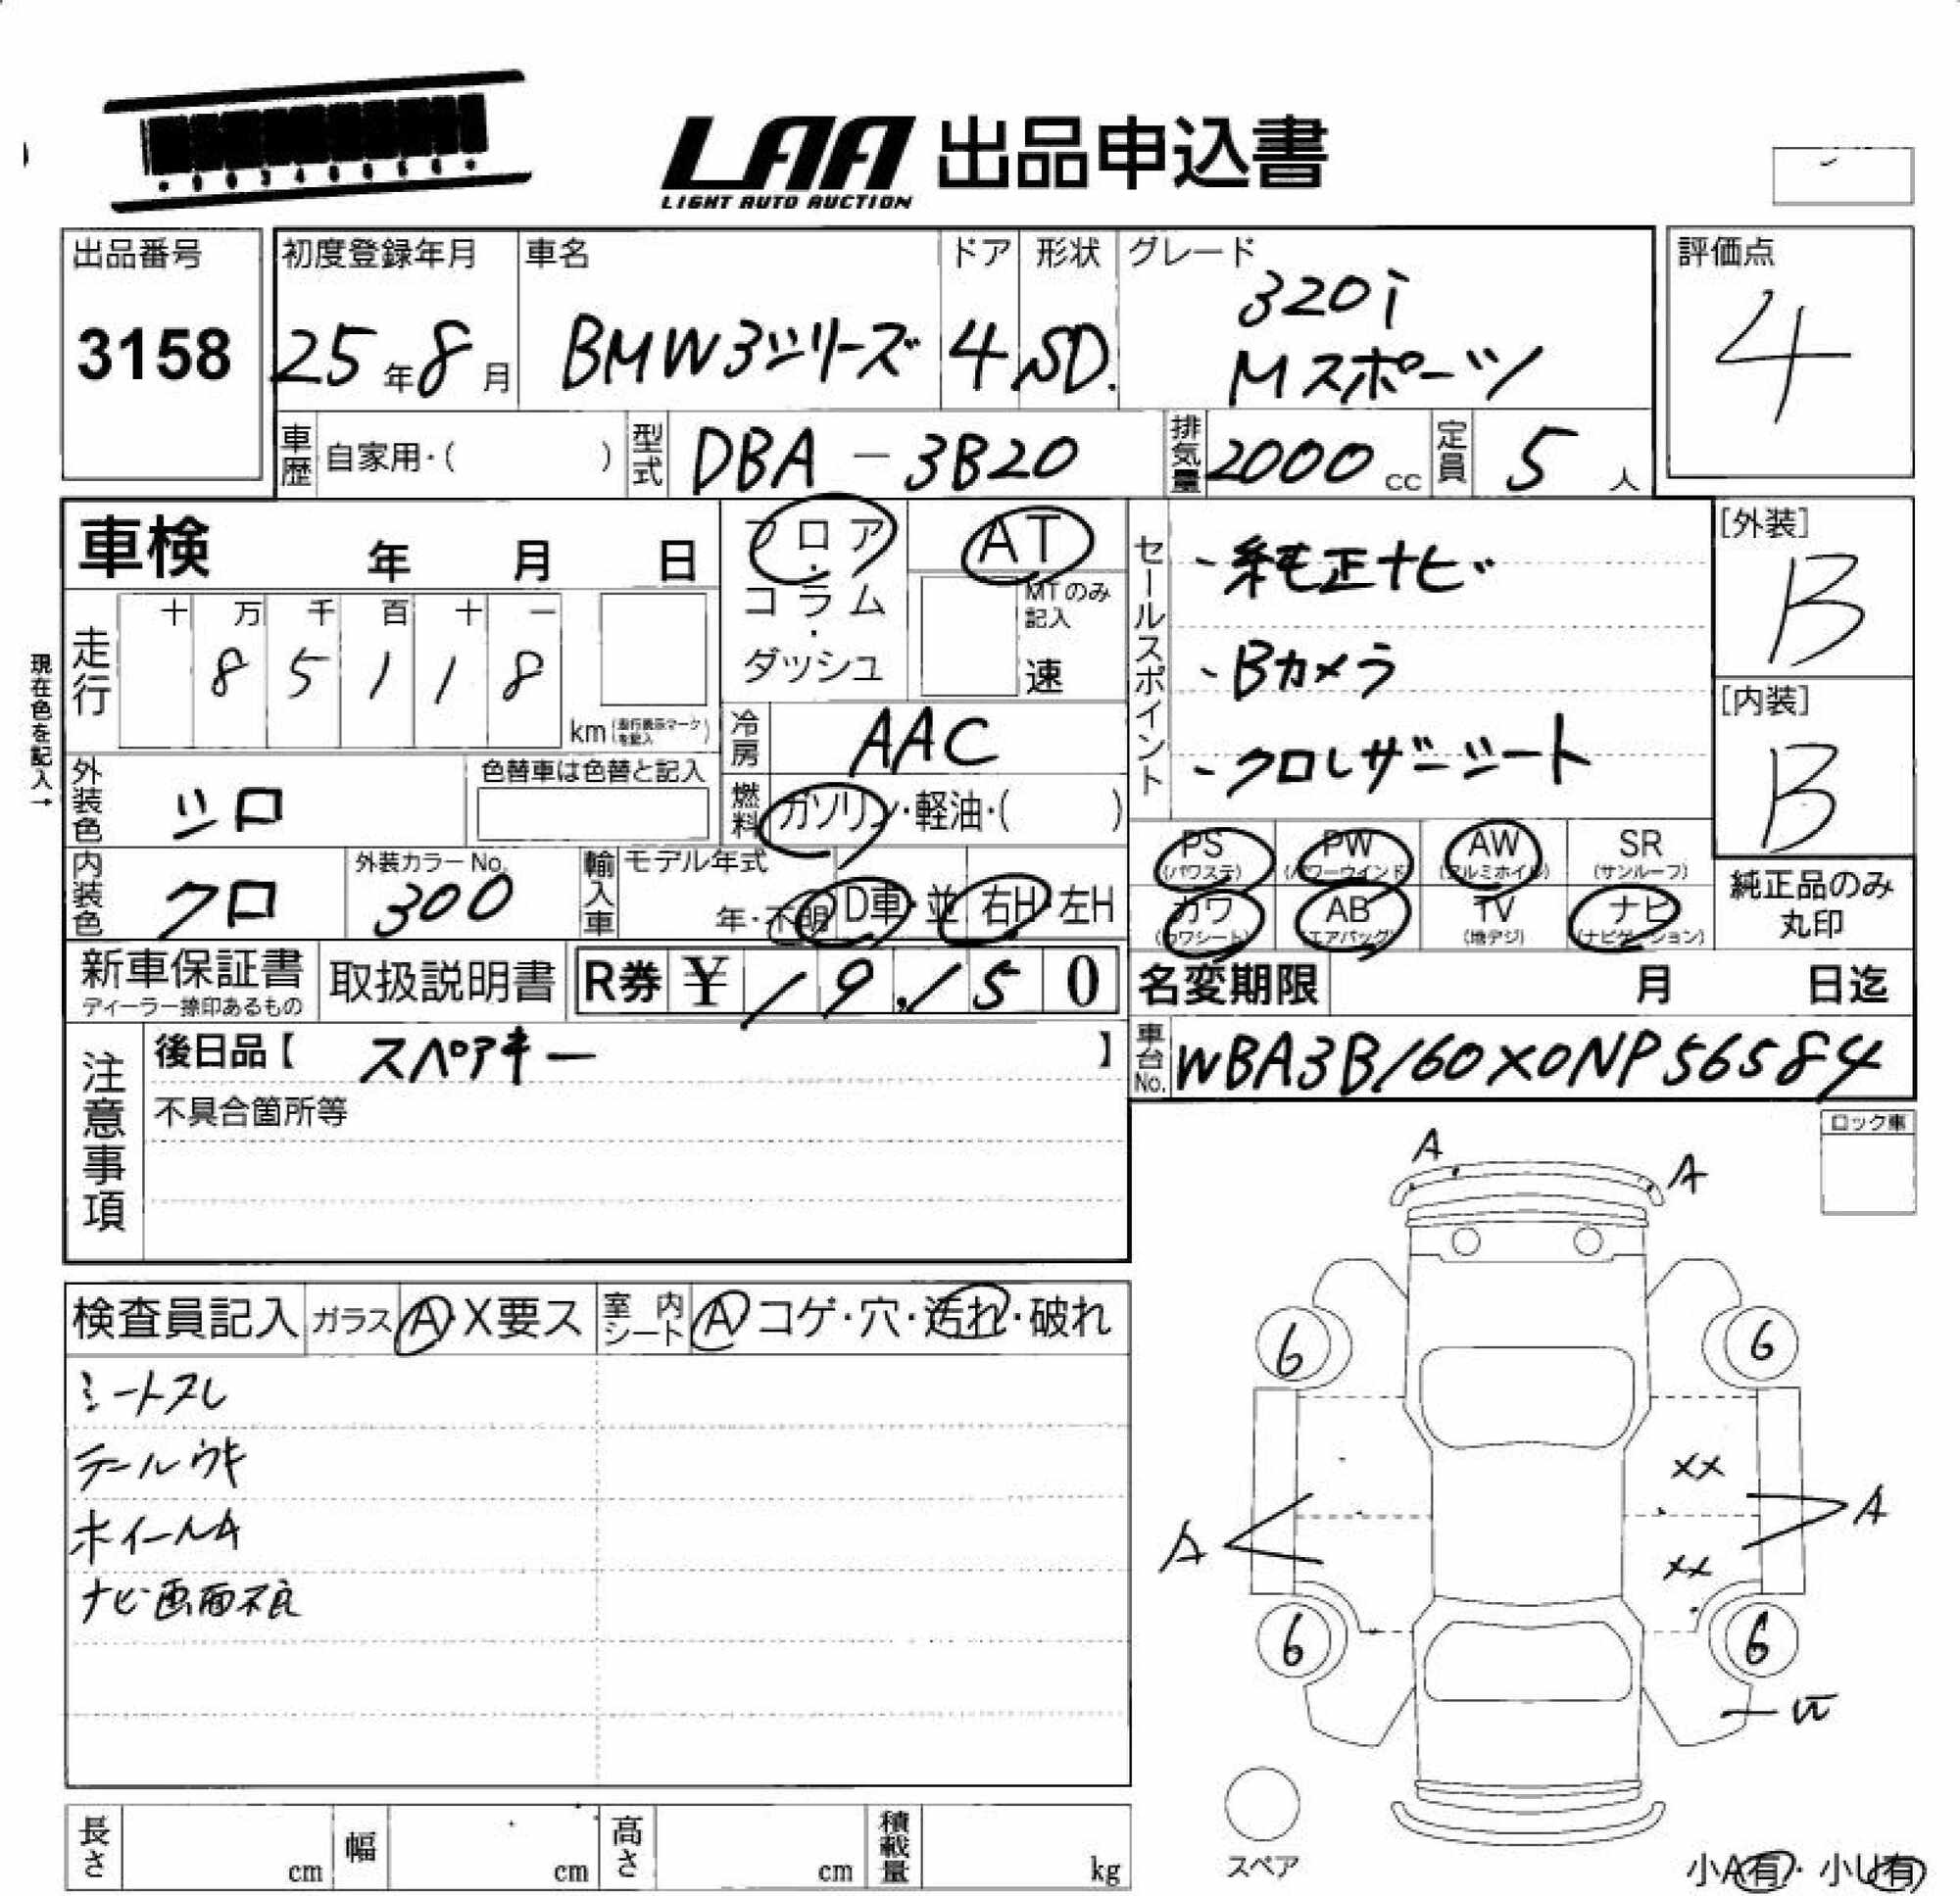 LAA 出品申込書
LIGHT AUTO AUCTION
出品番号
3158
初度登録年月
25年8月
車名
BMW3シリーズ
ドア
4
形状
SD.
グレード
320i
Mスポーツ
評価点
4
車歴 自家用・( )
型式 DBA - 3B20
排気量 2000 cc
定員 5 人
車検 年 月 日
フロア・コラム・ダッシュ
AT
MTのみ記入
速
セールスポイント
・純正ナビ
・Bカメラ
・クロレザーシート
[外装]
B
[内装]
B
現在色を記入→
走行
十 万 千 百 十 一
8 5 1 1 8
km (走行表示マークを記入)
冷房 AAC
燃料 ガソリン・軽油・( )
外装色 シロ
色替車は色替と記入
内装色 クロ
外装カラーNo.
300
輸入車
モデル年式
年・不明
D車・並
右H・左H
PS (パワステ)
PW (パワーウインド)
AW (アルミホイル)
SR (サンルーフ)
カワ (カワシート)
AB (エアバッグ)
TV (地デジ)
ナビ (ナビゲーション)
純正品のみ
丸印
新車保証書
ディーラー捺印あるもの
取扱説明書
R券 ¥ 19,150
名変期限 月 日迄
注意事項
後日品【 スペアキー 】
不具合箇所等
車台No. WBA3B160X0NP56584
ロック車
検査員記入
ガラス A・X要ス
室内シート A コゲ・穴・汚れ・破れ
シートスレ
テールウキ
ホイールA
ナビ画面不良
A
A
6
6
XX
A
A
XX
6
6
スペア
小A有・小U有
長さ cm
幅 cm
高さ cm
積載量 kg